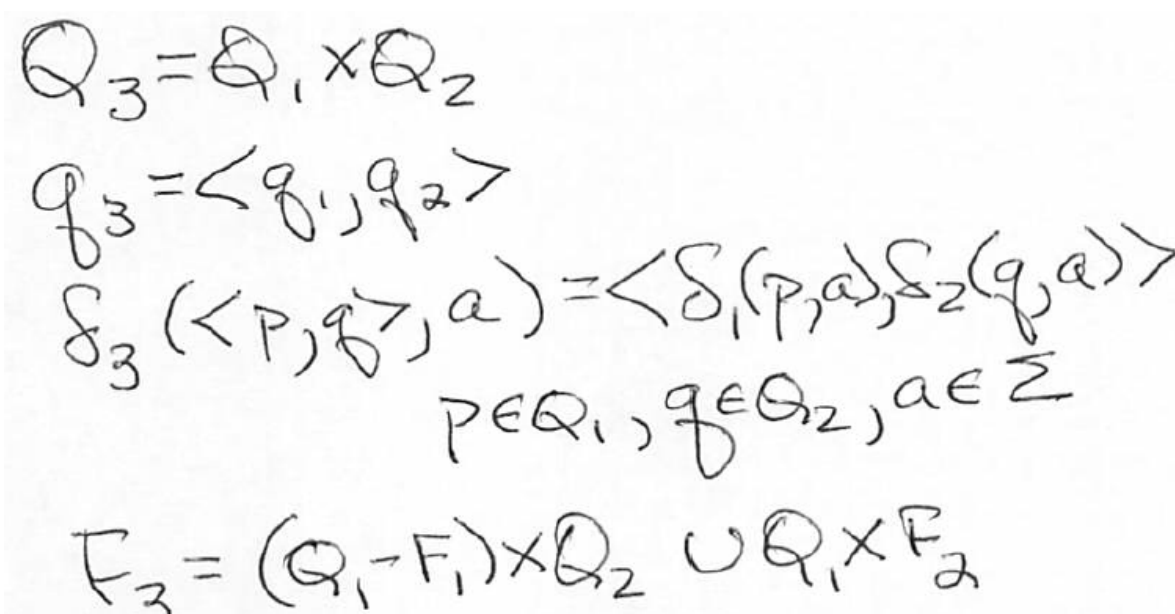 Q₃ = Q₁ × Q₂
q₃ = <q₁, q₂>
δ₃(<p, q>, a) = <δ₁(p,a), δ₂(q,a)>
p ∈ Q₁, q ∈ Q₂, a ∈ Σ
F₃ = (Q₁ - F₁) × Q₂ ∪ Q₁ × F₂